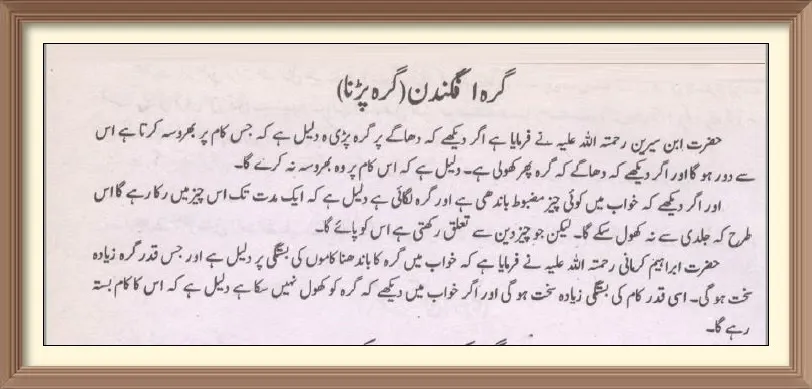 گرہ افگندن (گرہ پڑنا)
حضرت ابن سیرین رحمتہ اللہ علیہ نے فرمایا ہے اگر دیکھے کہ دھاگے پر گرہ پڑی ہ دلیل ہے کہ جس کام پر بھروسہ کرتا ہے اس
سے دور ہو گا اور اگر دیکھے کہ دھاگے کہ گرہ پھر کھولی ہے۔ دلیل ہے کہ اس کام پر وہ بھروسہ نہ کرے گا۔
اور اگر دیکھے کہ خواب میں کوئی چیز مضبوط باندھی ہے اور گرہ لگائی ہے دلیل ہے کہ ایک مدت تک اس چیز میں رکا رہے گا اس
طرح کہ جلدی سے نہ کھول سکے گا۔ لیکن جو چیز دین سے تعلق رکھتی ہے اس کو پائے گا۔
حضرت ابراہیم کرمانی رحمتہ اللہ علیہ نے فرمایا ہے کہ خواب میں گرہ کا باندھنا کاموں کی بستگی پر دلیل ہے اور جس قدر گرہ زیادہ
سخت ہو گی۔ اسی قدر کام کی بستگی زیادہ سخت ہو گی اور اگر خواب میں دیکھے کہ گرہ کو کھول نہیں سکا ہے دلیل ہے کہ اس کا کام بستہ
رہے گا۔